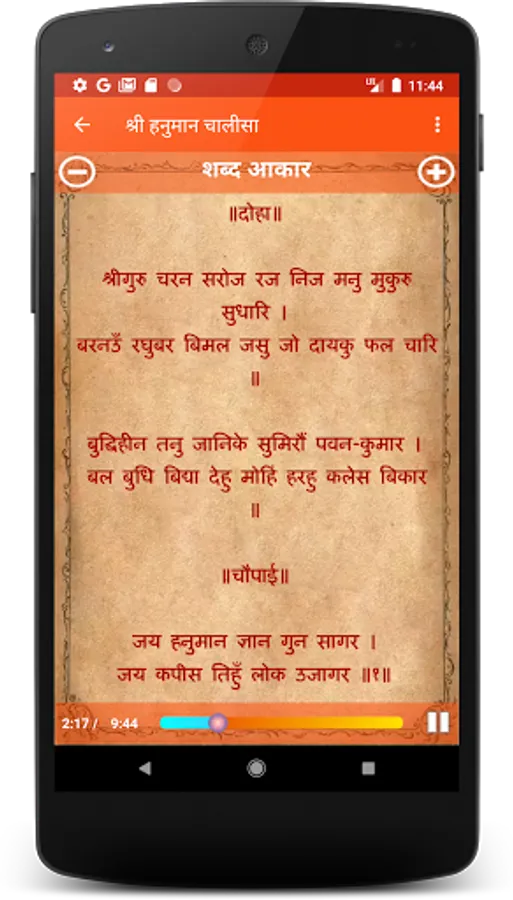 11:44
श्री हनुमान चालीसा
शब्द आकार
॥दोहा॥
श्रीगुरु चरन सरोज रज निज मनु मुकुरु
सुधारि ।
बरनउँ रघुबर बिमल जसु जो दायकु फल चारि
॥
बुद्धिहीन तनु जानिके सुमिरौं पवन-कुमार ।
बल बुधि बिद्या देहु मोहिं हरहु कलेस बिकार
॥
॥चौपाई॥
जय हनुमान ज्ञान गुन सागर ।
जय कपीस तिहुँ लोक उजागर ॥१॥
2:17 / 9:44